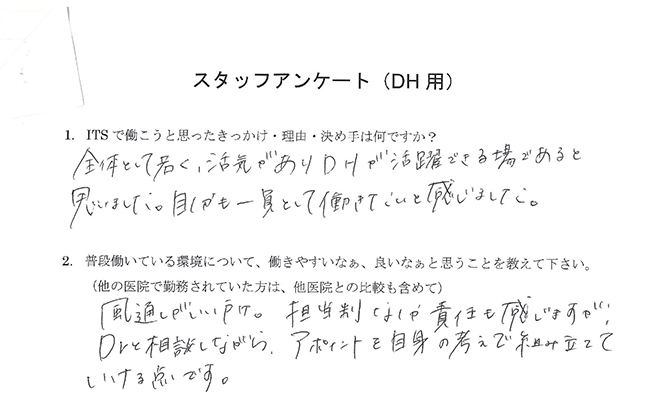 スタッフアンケート（DH 用）
1. ITS で働こうと思ったきっかけ・理由・決め手は何ですか？
全体として若く、活気がありDHが活躍できる場であると
思いました。自分も一員として働きたいと感じました。
2. 普段働いている環境について、働きやすいなぁ、良いなぁと思うことを教えて下さい。
（他の医院で勤務されていた方は、他医院との比較も含めて）
風通しがいい所。担当制 責任も感じますが、
Drと相談しながら、アポイントを自身の考えで組み立てて
いける点です。